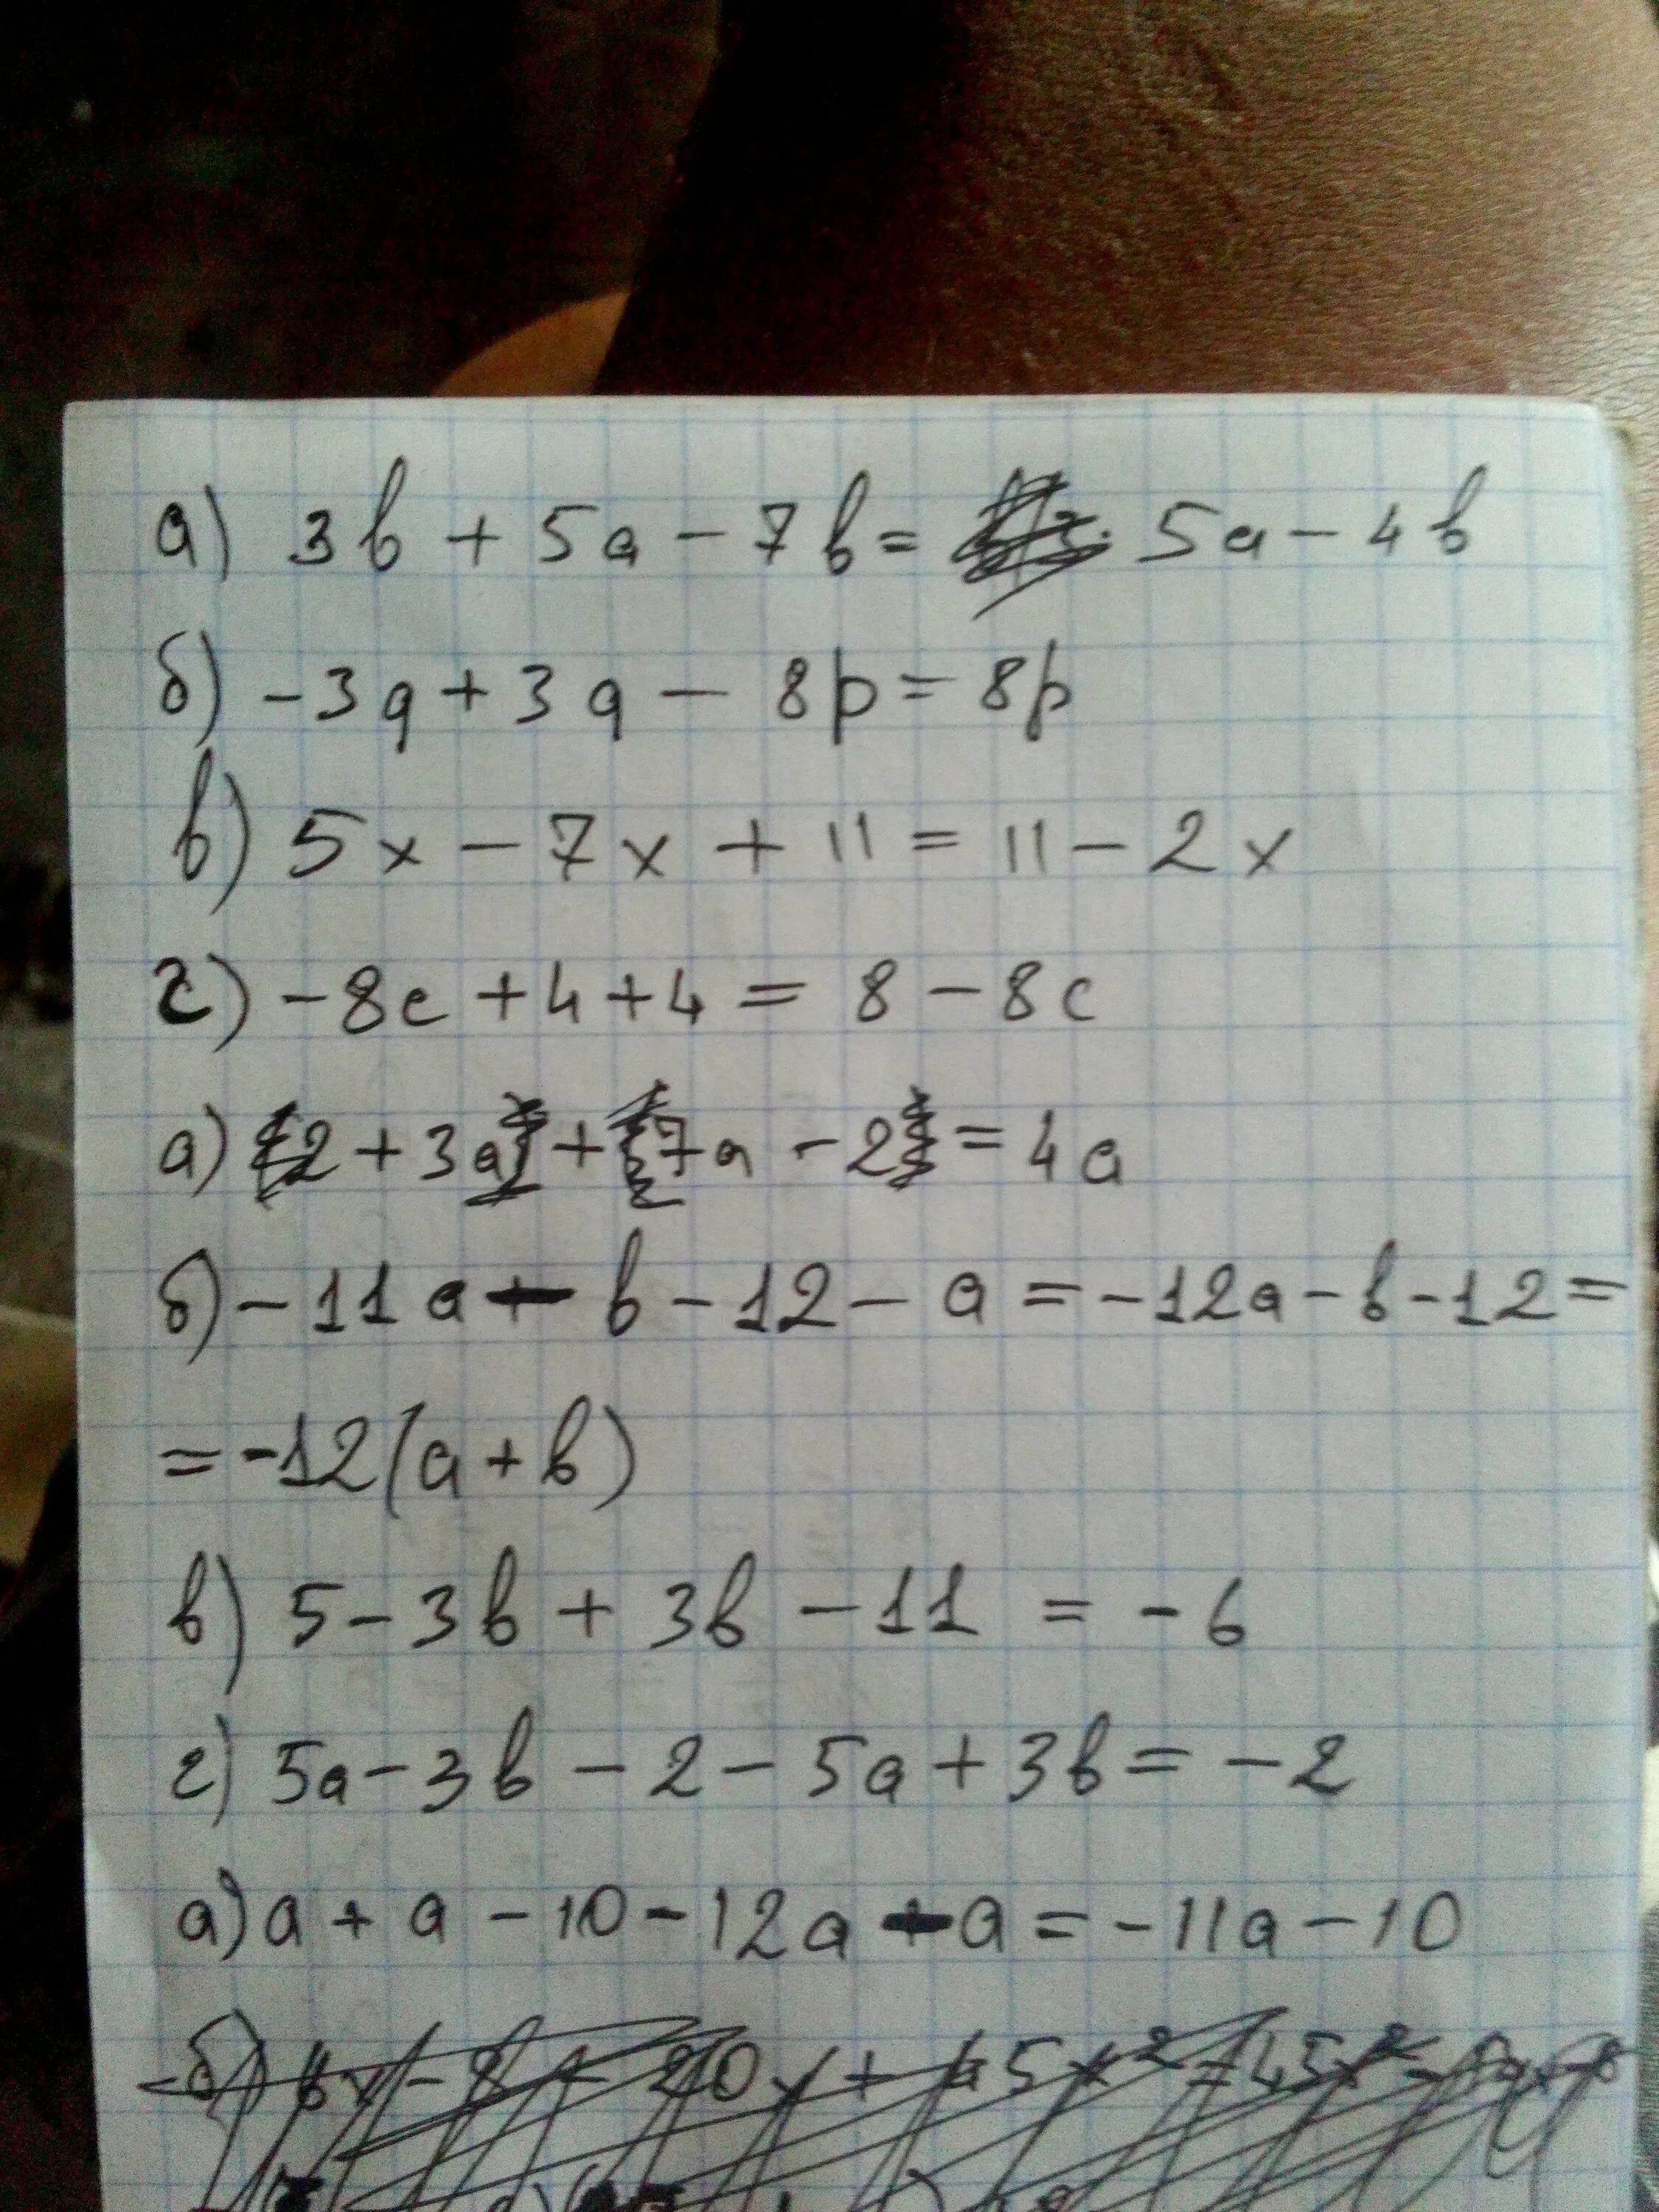 а) 3b + 5a - 7b = 5a - 4b
б) -3q + 3q - 8p = 8p
в) 5x - 7x + 11 = 11 - 2x
г) -8c + 4 + 4 = 8 - 8c
а) 2 + 3a + 7a - 2 = 4a
б) -11a - b - 12 - a = -12a - b - 12 =
= -12(a + b)
в) 5 - 3b + 3b - 11 = -6
г) 5a - 3b - 2 - 5a + 3b = -2
а) a + a - 10 - 12a - a = -11a - 10